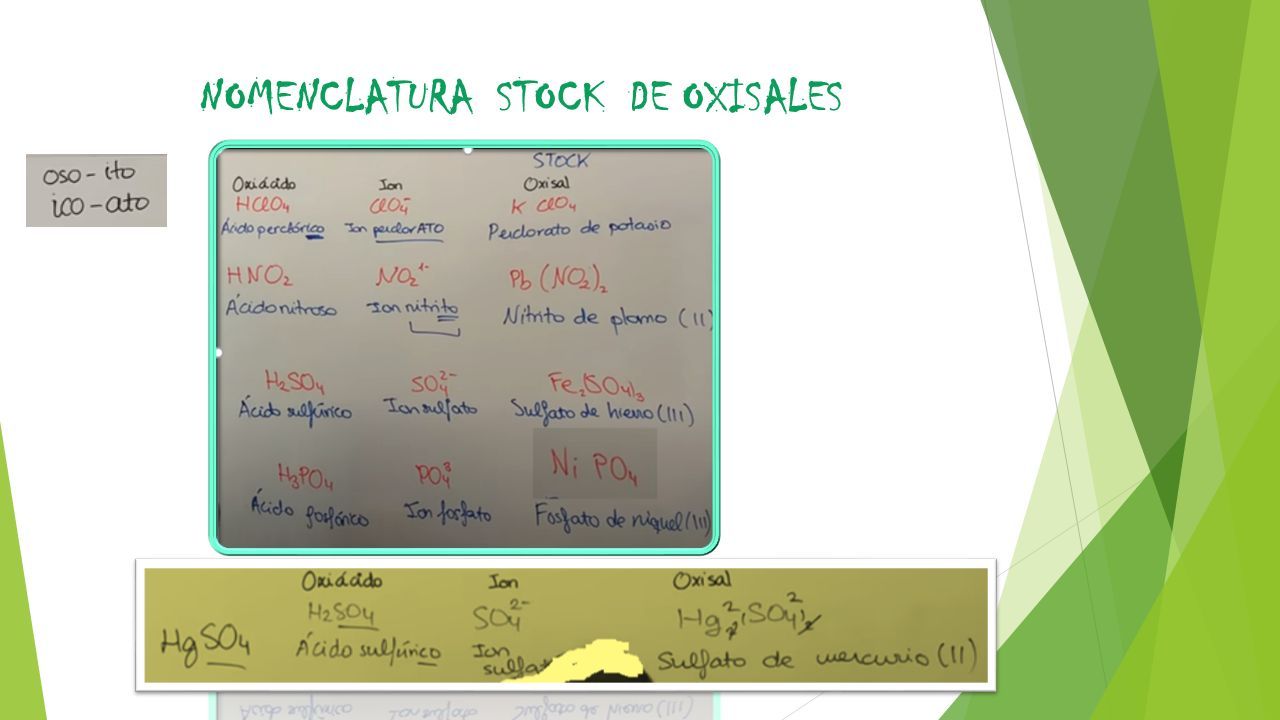 NOMENCLATURA STOCK DE OXISALES
oso - ito
ico - ato
STOCK
Oxiácido Ion Oxisal
HClO₄ ClO₄⁻ K ClO₄
Ácido perclórico Ion perclorATO Perclorato de potasio
HNO₂ NO₂¹⁻ Pb (NO₂)₂
Ácido nitroso Ion nitrito Nitrito de plomo (II)
H₂SO₄ SO₄²⁻ Fe₂(SO₄)₃
Ácido sulfúrico Ion sulfato Sulfato de hierro (III)
H₃PO₄ PO₄³ Ni PO₄
Ácido fosfórico Ion fosfato Fosfato de niquel (III)
Oxiácido Ion Oxisal
HgSO₄ H₂SO₄ SO₄²⁻ Hg₂²(SO₄²)₂
Ácido sulfúrico Ion Sulfato de mercurio (II)
sulfat